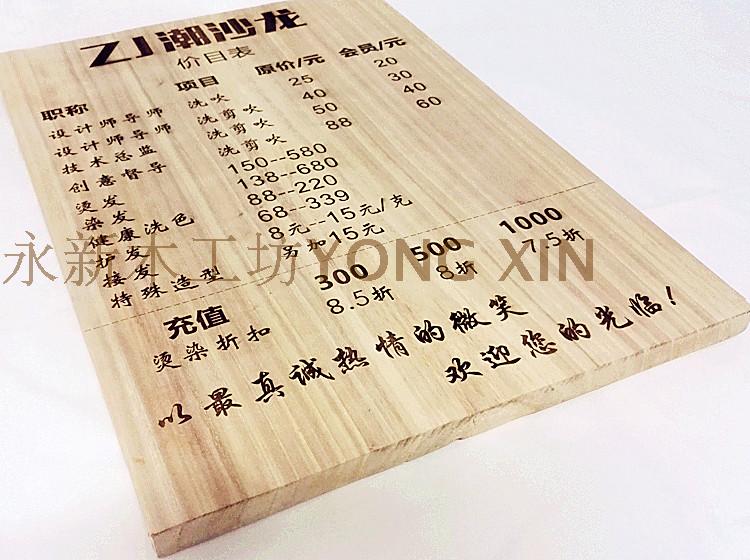 ZJ潮沙龙
价目表
职称 项目 原价/元 会员/元
设计师导师 洗吹 25 20
设计师导师 洗剪吹 40 30
技术总监 洗剪吹 50 40
创意督导 洗剪吹 88 60
烫发 150--580
染发 138--680
健康洗色 88--220
护发 68--339
接发 8元--15元/克
特殊造型 另加15元
充值 300 500 1000
烫染折扣 8.5折 8折 7.5折
以最真诚热情的微笑
欢迎您的光临!
永新木工坊YONG XIN